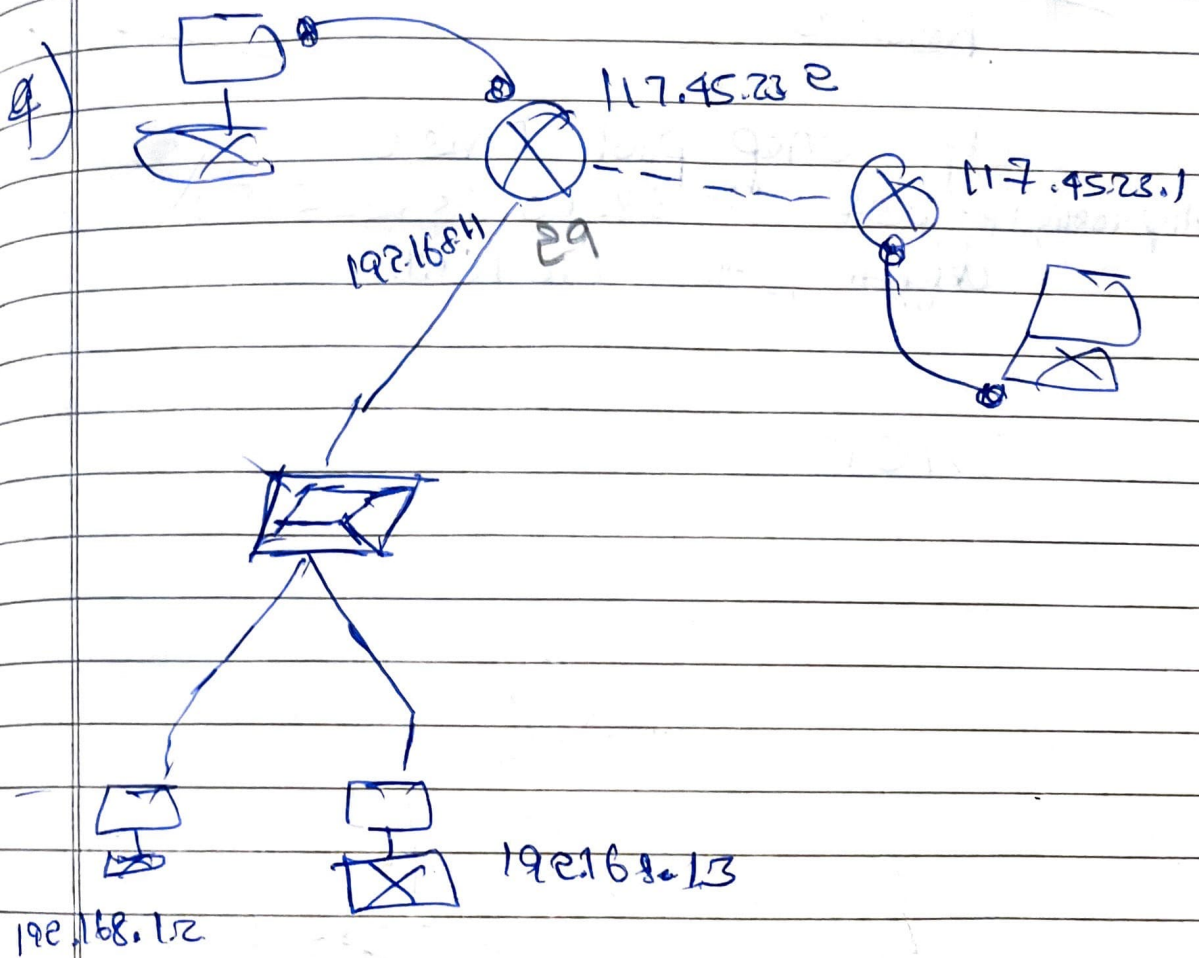 9)
117.45.23 2
117.4523.1
192.168.11
29
192.168.13
192.168.1.2